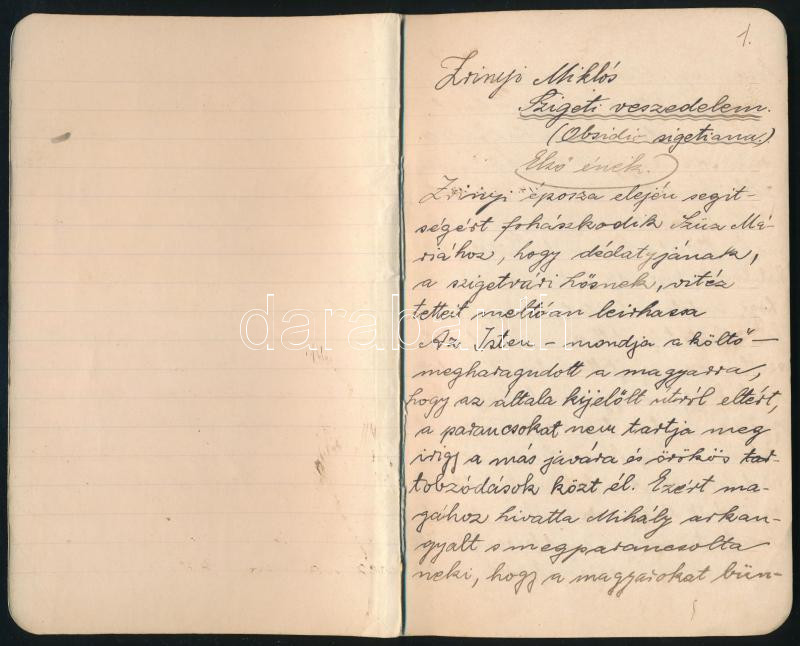 1.
Zrinyi Miklós
Szigeti veszedelem.
(Obsidio sigetiana.)
Első ének.
Zrinyi éposza elején segit-
ségért fohászkodik Szüz Má-
riához, hogy dédatyjának,
a szigetvári hősnek, vitéz
tetteit méltóan leirhassa
Az Isten – mondja a költő –
megharagudott a magyarra,
hogy az általa kijelölt útról eltért,
a parancsokat nem tartja meg
irigy a más javára és örökös tar-
tobzódások közt él. Ezért ma-
gához hivatta Mihály arkan-
gyalt s megparancsolta
neki, hogy a magyarokat bün-
darabanth